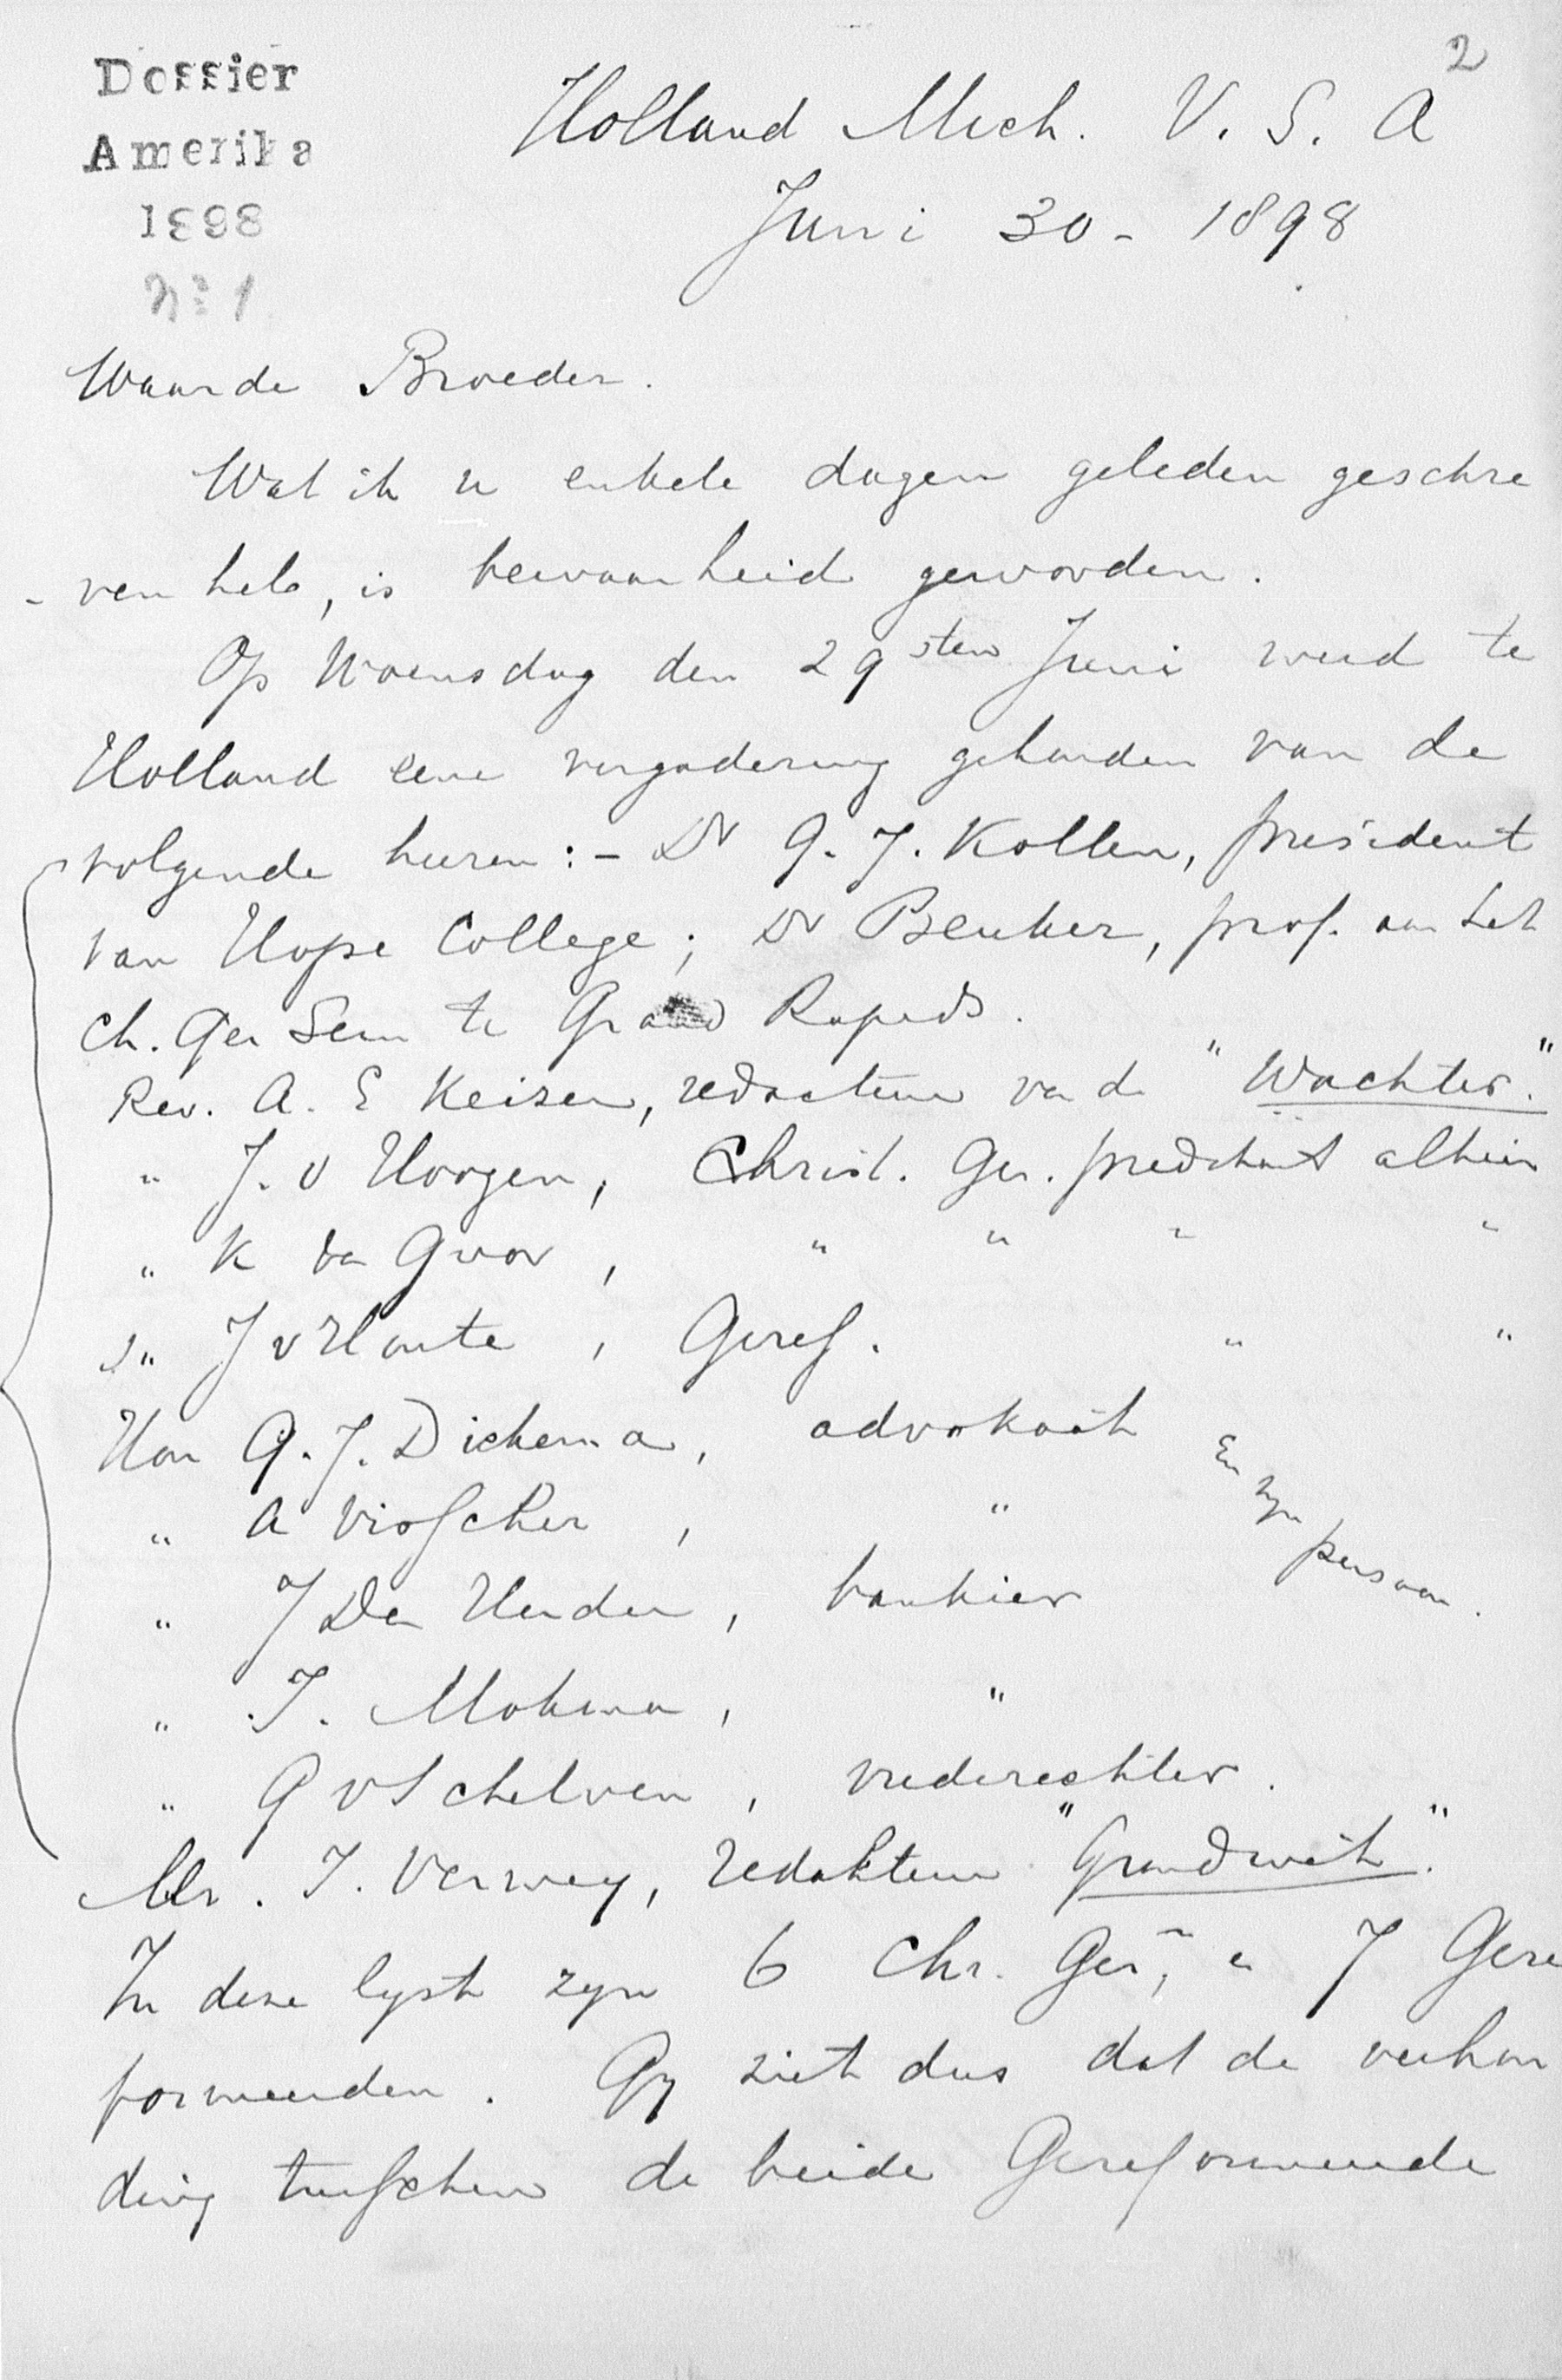 2
Dossier
Amerika
1898
No 1
Holland Mich. V. S. A
Juni 30 - 1898
Waarde Broeder.
Wat ik u enkele dagen geleden geschre
-ven heb, is bewaarheid geworden.
Op Woensdag den 29sten Juni werd te
Holland eene vergadering gehouden van de
volgende heeren: - Dr G. J. Kollen, president
van Hope College; Dr Beuker, prof. aan het
Ch. Ger Sem te Grand Rapids.
Rev. A. E Keizer, redacteur va de "Wachter."
" J. v Hoogen, Christ. Ger. predikant alhier
" K va Goor, " " " "
" J v Houte, Geref. " "
Hon G. J. Diekema, advokaat
" A Visscher, "
" J Den Herder, bankier
" J. Mokma, "
" G v Schelven, vrederechter.
En myn persoon.
Mr. J. Verwey, redakteur "Grondwet."
In deze lyst zyn 6 Chr. Ger, en 7 Gere
formeerden. Gy ziet dus dat de verhou
ding tusschen de beide Gereformeerde